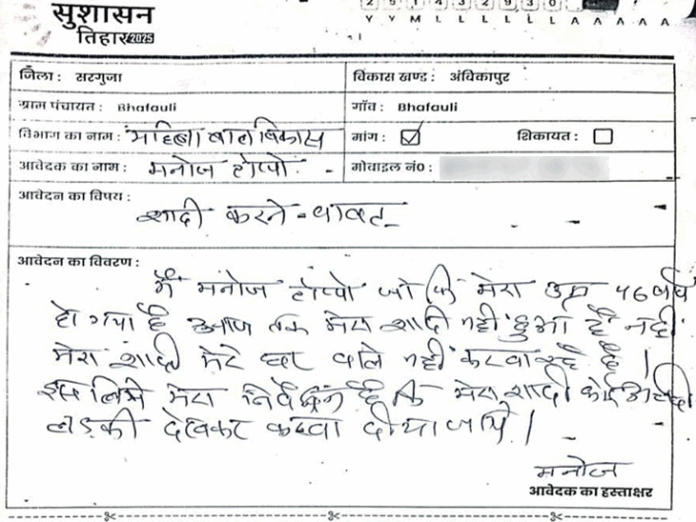 सुशासन
तिहार 2025
Y Y M L L L L L L A A A A A
जिला : सरगुजा
विकास खण्ड : अंविकापुर
ग्राम पंचायत : Bhafauli
गाँव : Bhafauli
विभाग का नाम : महिला बाल विकास
मांग : ☑ शिकायत : ☐
आवेदक का नाम : मनोज टोप्पो
मोबाइल नं० :
आवेदन का विषय :
शादी करने - वावत
आवेदन का विवरण :
मैं मनोज टोप्पो जो कि मेरा उम्र 46 वर्ष
हो गया है आज तक मेरा शादी नहीं हुआ है नही
मेरा शादी मेरे घर वाले नहीं करवा रहे है ।
इस लिये मेरा निवेदन है कि मेरा शादी कोई अच्छी
लड़की देखकर करवा दीया जाये ।
मनोज
आवेदक का हस्ताक्षर